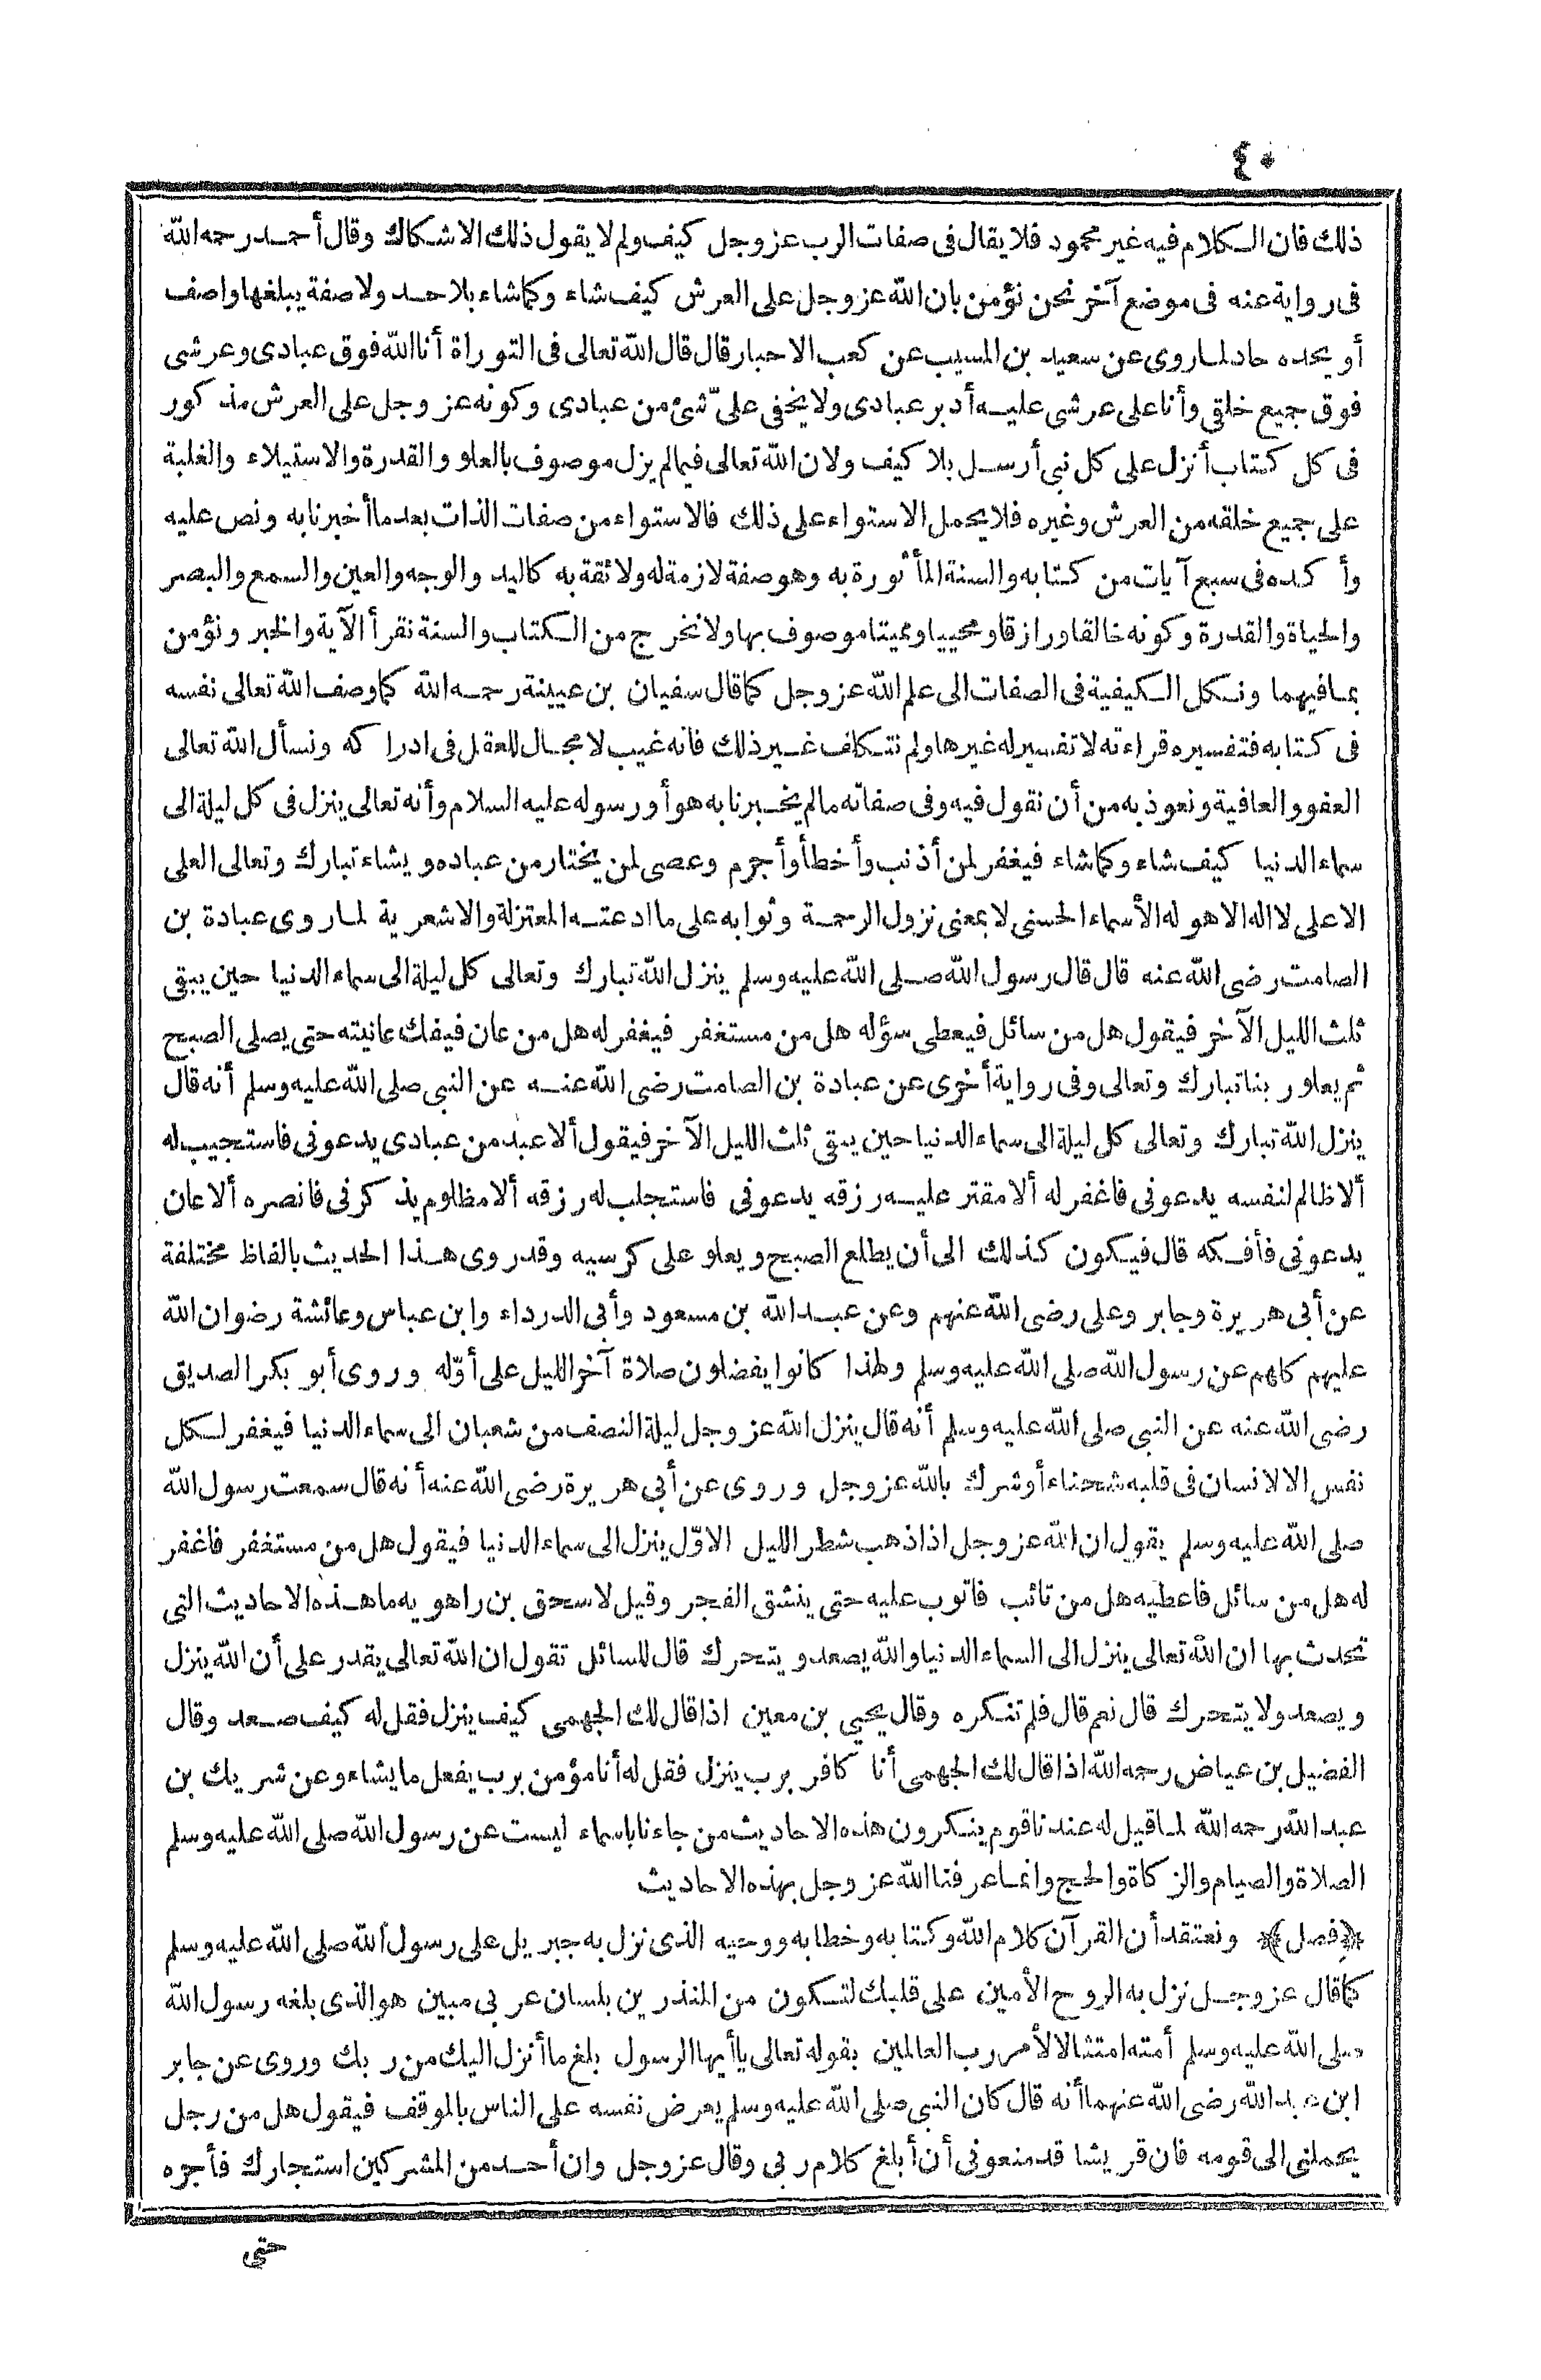 ٤٠
ذلك فان الكلام فيه غير محمود فلا يقال فى صفات الرب عز وجل كيف ولم لا يقول ذلك الا شكاك وقال أحمد رحمه الله
فى رواية عنه فى موضع آخر نحن نؤمن بان الله عز وجل على العرش كيف شاء وكما شاء بلا حد ولا صفة يبلغها واصف
أو يحده حاد لما روى عن سعيد بن المسيب عن كعب الاحبار قال قال الله تعالى فى التوراة أنا الله فوق عبادى وعرشى
فوق جميع خلقى وأنا على عرشى عليه أدبر عبادى ولا يخفى علىّ شئ من عبادى وكونه عز وجل على العرش مذكور
فى كل كتاب أنزل على كل نبى أرسل بلا كيف ولان الله تعالى فيما لم يزل موصوف بالعلو والقدرة والاستيلاء والغلبة
على جميع خلقه من العرش وغيره فلا يحمل الاستواء على ذلك فالاستواء من صفات الذات بعد ما أخبرنا به ونص عليه
وأكده فى سبع آيات من كتابه والسنة المأثورة به وهو صفة لازمة له ولائقة به كاليد والوجه والعين والسمع والبصر
والحياة والقدرة وكونه خالقا ورازقا ومحييا ومميتا موصوف بها ولا نخرج من الكتاب والسنة نقرأ الآية والخبر ونؤمن
بما فيهما ونكل الكيفية فى الصفات الى علم الله عز وجل كما قال سفيان بن عيينة رحمه الله كما وصف الله تعالى نفسه
فى كتابه فتفسيره قراءته لا تفسير له غيرها ولم نتكلف غير ذلك فانه غيب لا مجال للعقل فى ادراكه ونسأل الله تعالى
العفو والعافية ونعوذ به من أن نقول فيه وفى صفاته ما لم يخبرنا به هو أو رسوله عليه السلام وأنه تعالى ينزل فى كل ليلة الى
سماء الدنيا كيف شاء وكما شاء فيغفر لمن أذنب وأخطأ وأجرم وعصى لمن يختار من عباده ويشاء تبارك وتعالى العلى
الاعلى لا اله الا هو له الأسماء الحسنى لا بمعنى نزول الرحمة وثوابه على ما ادعته المعتزلة والاشعرية لما روى عبادة بن
الصامت رضى الله عنه قال قال رسول الله صلى الله عليه وسلم ينزل الله تبارك وتعالى كل ليلة الى سماء الدنيا حين يبقى
ثلث الليل الآخر فيقول هل من سائل فيعطى سؤله هل من مستغفر فيغفر له هل من عان فيفك عانيته حتى يصلى الصبح
ثم يعلو ربنا تبارك وتعالى وفى رواية أخرى عن عبادة بن الصامت رضى الله عنه عن النبى صلى الله عليه وسلم أنه قال
ينزل الله تبارك وتعالى كل ليلة الى سماء الدنيا حين يبقى ثلث الليل الآخر فيقول ألا عبد من عبادى يدعونى فاستجيب له
ألا ظالم لنفسه يدعونى فاغفر له ألا مقتر عليه رزقه يدعونى فاستجلب له رزقه ألا مظلوم يذكرنى فانصره ألا عان
يدعونى فأفكه قال فيكون كذلك الى أن يطلع الصبح ويعلو على كرسيه وقد روى هذا الحديث بالفاظ مختلفة
عن أبى هريرة وجابر وعلى رضى الله عنهم وعن عبد الله بن مسعود وأبى الدرداء وابن عباس وعائشة رضوان الله
عليهم كلهم عن رسول الله صلى الله عليه وسلم ولهذا كانوا يفضلون صلاة آخر الليل على أوّله وروى أبو بكر الصديق
رضى الله عنه عن النبى صلى الله عليه وسلم أنه قال ينزل الله عز وجل ليلة النصف من شعبان الى سماء الدنيا فيغفر لكل
نفس الا لانسان فى قلبه شحناء أو شرك بالله عز وجل وروى عن أبى هريرة رضى الله عنه أنه قال سمعت رسول الله
صلى الله عليه وسلم يقول ان الله عز وجل اذا ذهب شطر الليل الاوّل ينزل الى سماء الدنيا فيقول هل من مستغفر فاغفر
له هل من سائل فاعطيه هل من تائب فاتوب عليه حتى ينشق الفجر وقيل لاسحق بن راهويه ما هذه الاحاديث التى
تحدث بها ان الله تعالى ينزل الى السماء الدنيا والله يصعد ويتحرك قال للسائل تقول ان الله تعالى يقدر على أن الله ينزل
ويصعد ولا يتحرك قال نعم قال فلم تنكره وقال يحيى بن معين اذا قال لك الجهمى كيف ينزل فقل له كيف صعد وقال
الفضيل بن عياض رحمه الله اذا قال لك الجهمى أنا كافر برب ينزل فقل له أنا مؤمن برب يفعل ما يشاء وعن شريك بن
عبد الله رحمه الله لما قيل له عندنا قوم ينكرون هذه الاحاديث من جاءنا باسماء ليست عن رسول الله صلى الله عليه وسلم
الصلاة والصيام والزكاة والحج وانما عرفنا الله عز وجل بهذه الاحاديث
﴿فصل﴾ ونعتقد أن القرآن كلام الله وكتابه وخطابه ووحيه الذى نزل به جبريل على رسول الله صلى الله عليه وسلم
كما قال عز وجل نزل به الروح الأمين على قلبك لتكون من المنذرين بلسان عربى مبين هو الذى بلغه رسول الله
صلى الله عليه وسلم أمته امتثالا لأمر رب العالمين بقوله تعالى ياأيها الرسول بلغ ما أنزل اليك من ربك وروى عن جابر
ابن عبد الله رضى الله عنهما أنه قال كان النبى صلى الله عليه وسلم يعرض نفسه على الناس بالموقف فيقول هل من رجل
يحملنى الى قومه فان قريشا قد منعونى أن أبلغ كلام ربى وقال عز وجل وان أحد من المشركين استجارك فأجره
حتى